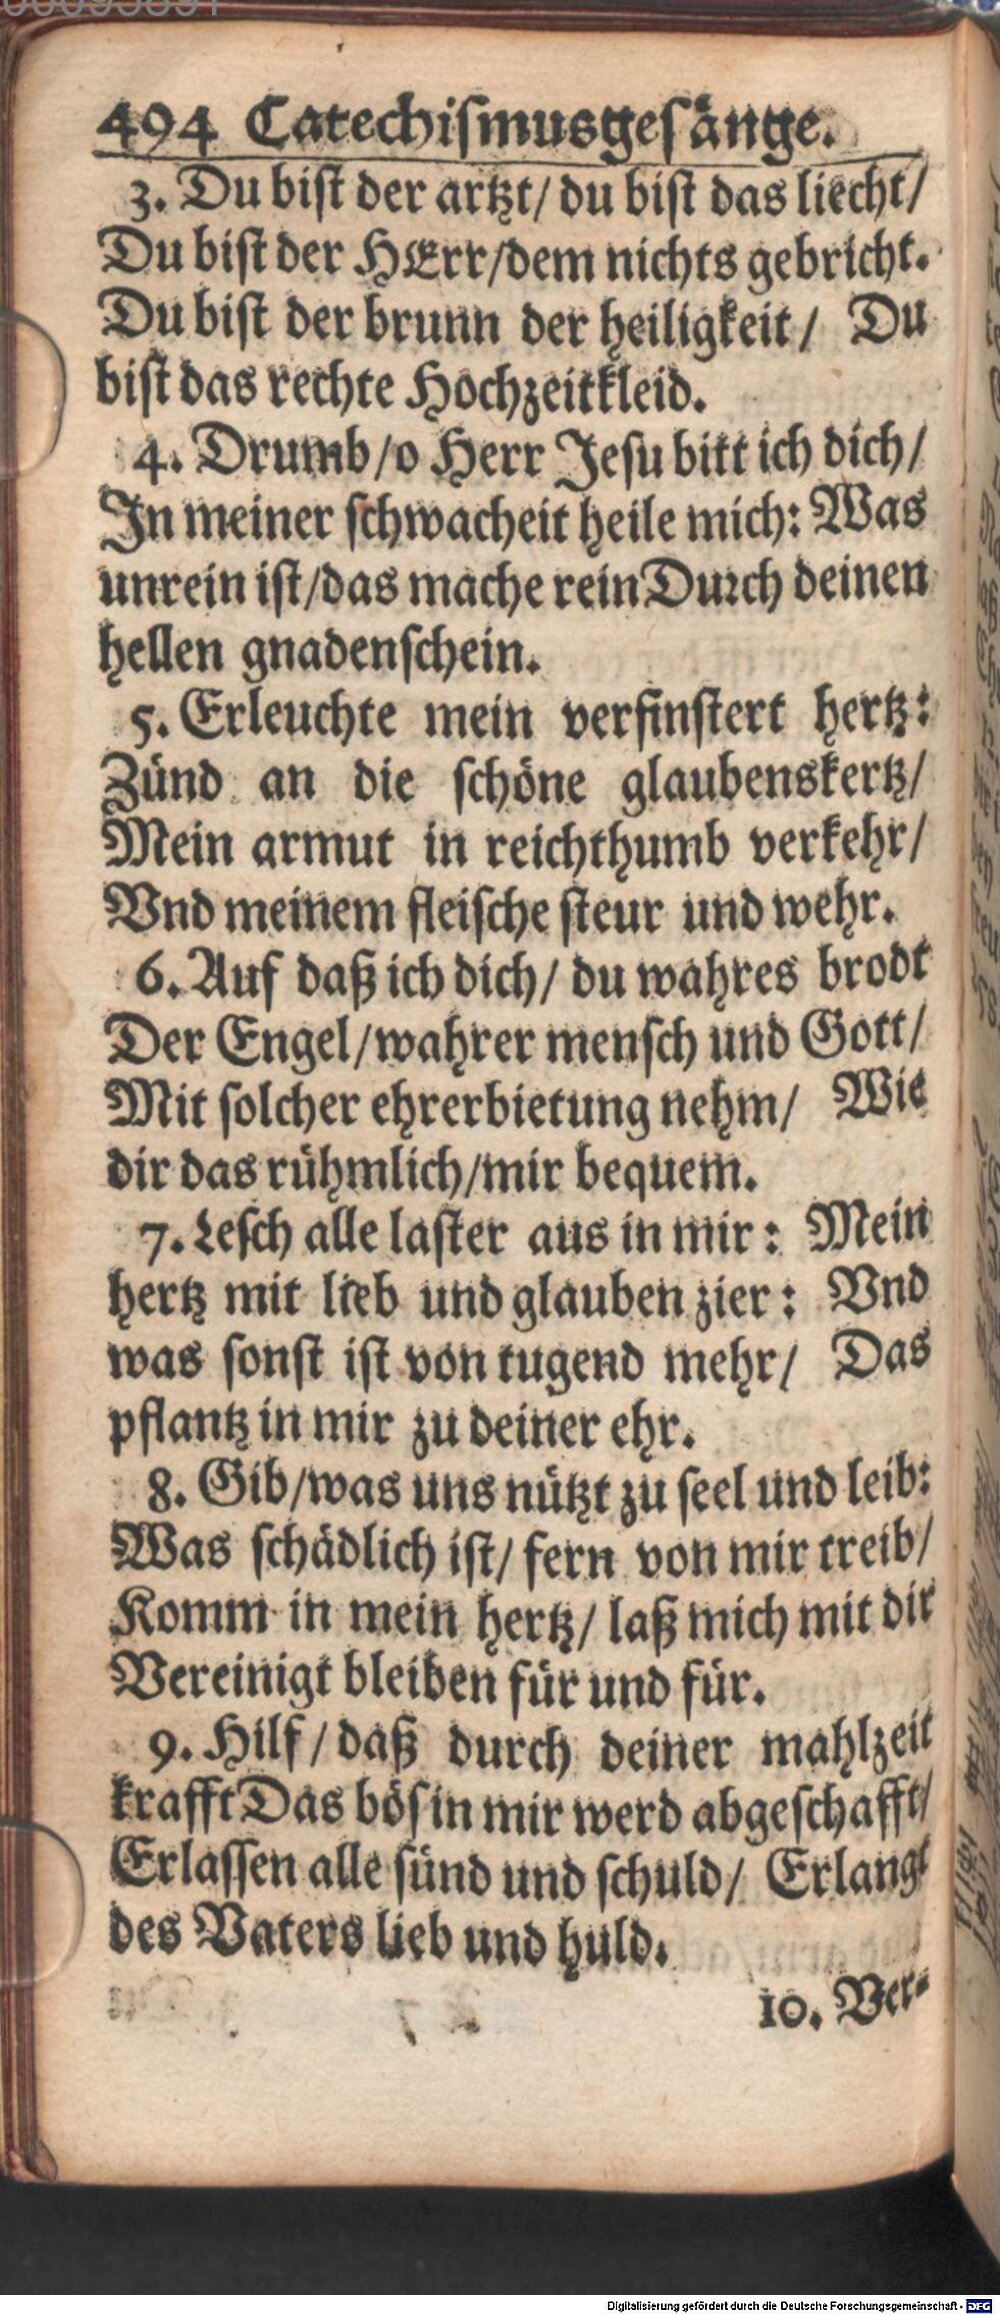 494 Catechismusgesänge.
3. Du bist der artzt/ du bist das liecht/
Du bist der HErr/dem nichts gebricht.
Du bist der brunn der heiligkeit/ Du
bist das rechte Hochzeitkleid.
4. Drumb/o Herr Jesu bitt ich dich/
In meiner schwacheit heile mich: Was
unrein ist/das mache rein Durch deinen
hellen gnadenschein.
5. Erleuchte mein verfinstert hertz:
Zünd an die schöne glaubenskertz/
Mein armut in reichthumb verkehr/
Vnd meinem fleische steur und wehr.
6. Auf daß ich dich/ du wahres brodt
Der Engel/wahrer mensch und Gott/
Mit solcher ehrerbietung nehm/ Wie
dir das rühmlich/mir bequem.
7. Lesch alle laster aus in mir: Mein
hertz mit lieb und glauben zier: Vnd
was sonst ist von tugend mehr/ Das
pflantz in mir zu deiner ehr.
8. Gib/was uns nützt zu seel und leib:
Was schädlich ist/ fern von mir treib/
Komm in mein hertz/ laß mich mit dir
Vereinigt bleiben für und für.
9. Hilf/ daß durch deiner mahlzeit
krafft Das bös in mir werd abgeschafft/
Erlassen alle sünd und schuld/ Erlangt
des Vaters lieb und huld.
10. Ver-
Digitalisierung gefördert durch die Deutsche Forschungsgemeinschaft - DFG